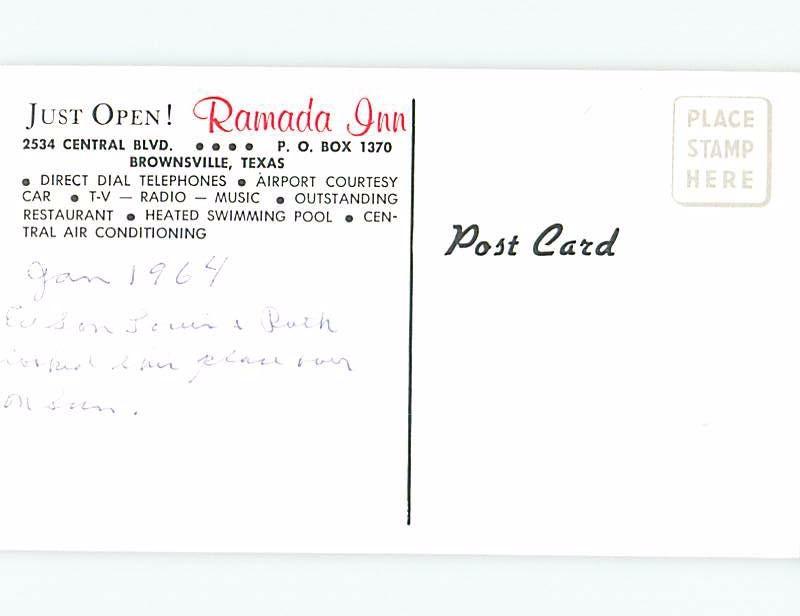 JUST OPEN! Ramada Inn
2534 CENTRAL BLVD. • • • • P. O. BOX 1370
BROWNSVILLE, TEXAS
• DIRECT DIAL TELEPHONES • AIRPORT COURTESY
CAR • T-V — RADIO — MUSIC • OUTSTANDING
RESTAURANT • HEATED SWIMMING POOL • CEN-
TRAL AIR CONDITIONING
Jan 1964
Son Louis & Ruth
place over
on Sun.
Post Card
PLACE
STAMP
HERE